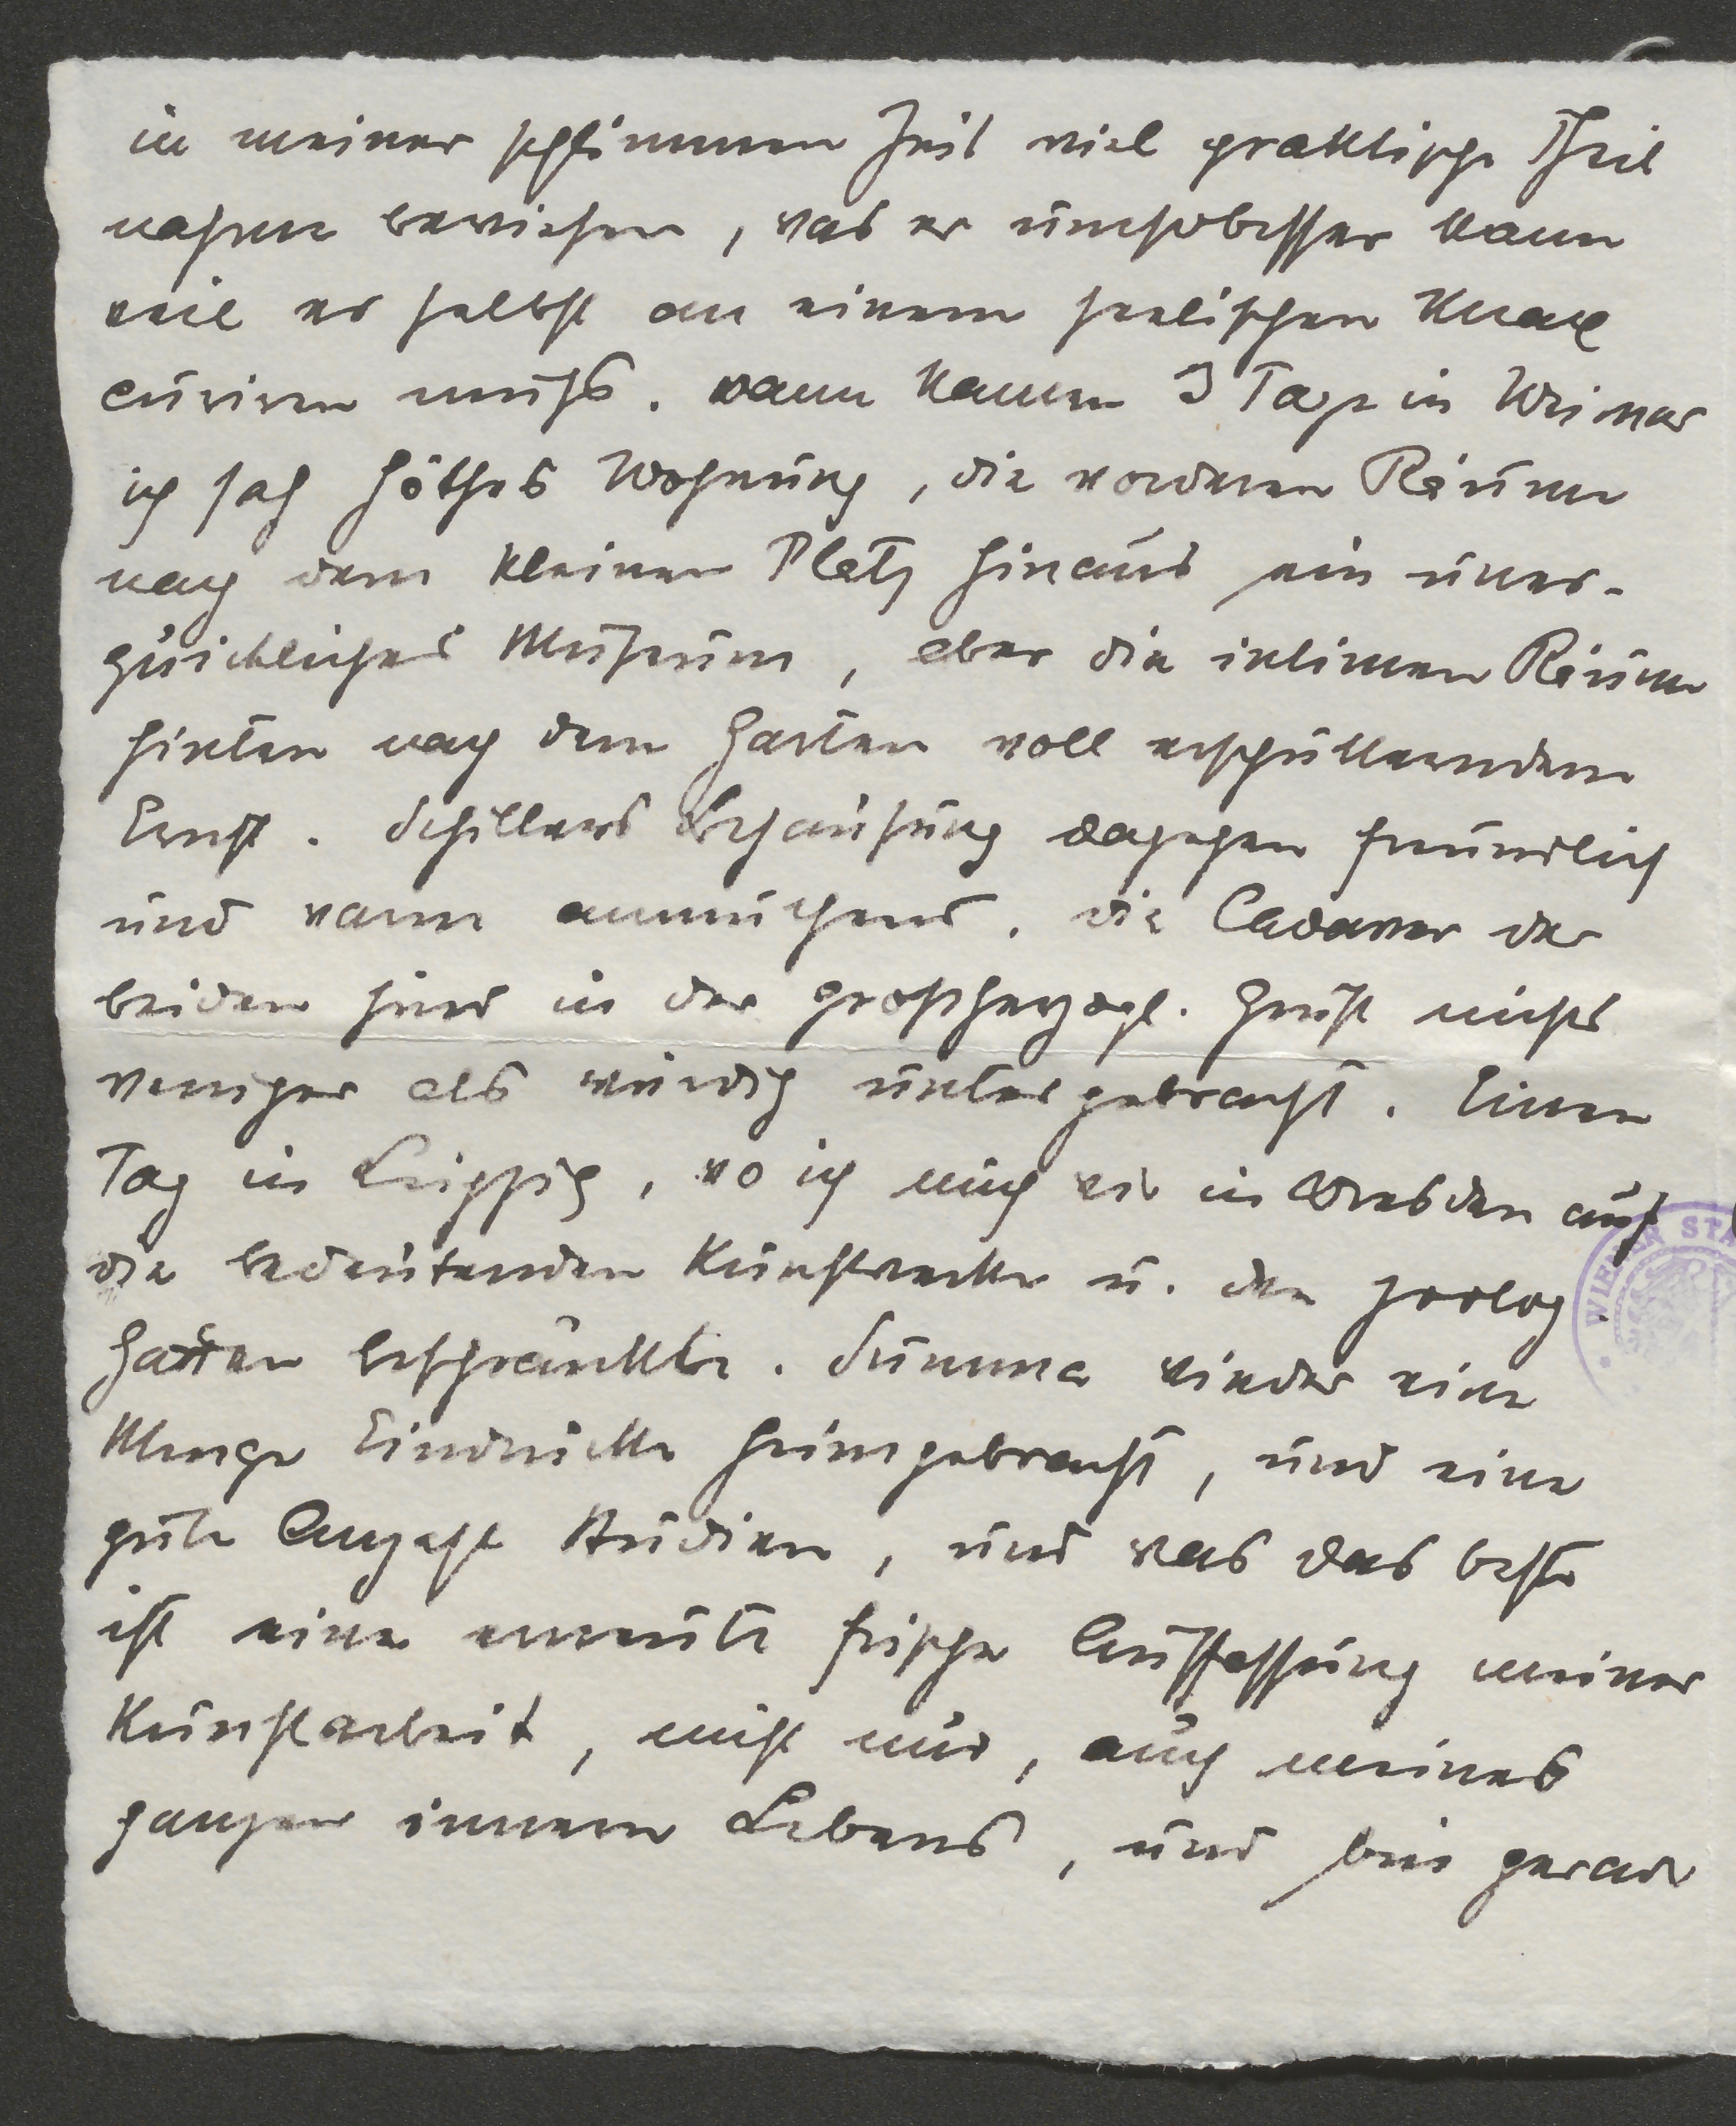 in meiner schlimmen Zeit viel praktische Theil
nahme bewiesen, was er umsobesser kann
weil er selbst an einem seelischen Knax
curiren muß. dann kamen 3 Tage in Weimar
ich sah Göthes Wohnung, die vorderen Räume
nach dem kleinen Platz hinaus ein uner-
quickliches Museum, aber die intimen Räume
hinten nach dem Garten voll erschütterndem
Ernst. Schillers Behausung dagegen freundlich
und warm anmuthend. die Cadaver der
beiden sind in der grossherzogl. Gruft nichts
weniger als würdig untergebracht. Einen
Tag in Leipzig, wo ich mich wie in Dresden auf
die bedeutenden Kunstwerke u. den zoolog.
Garten beschränkte. Summa wieder eine
Menge Eindrücke heimgebracht, und eine
gute Anzahl Studien, und was das beste
ist eine erneute frische Auffassung meiner
Kunstarbeit, nicht nur, auch meines
ganzen innern Lebens, und bin gerade
WIENER STA